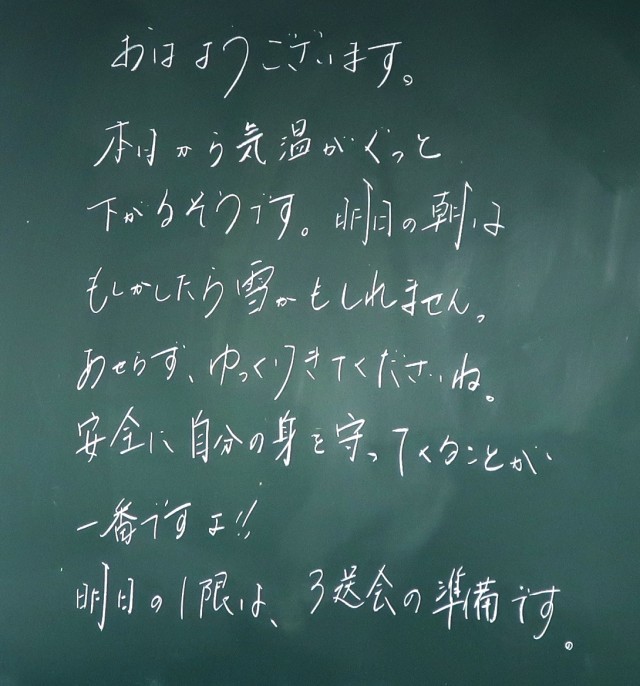 おはようございます。
本日から気温がぐっと
下がるそうです。明日の朝は
もしかしたら雪かもしれません。
あせらず、ゆっくりきてくださいね。
安全に自分の身を守ってくることが
一番ですよ!!
明日の1限は、3送会の準備です。